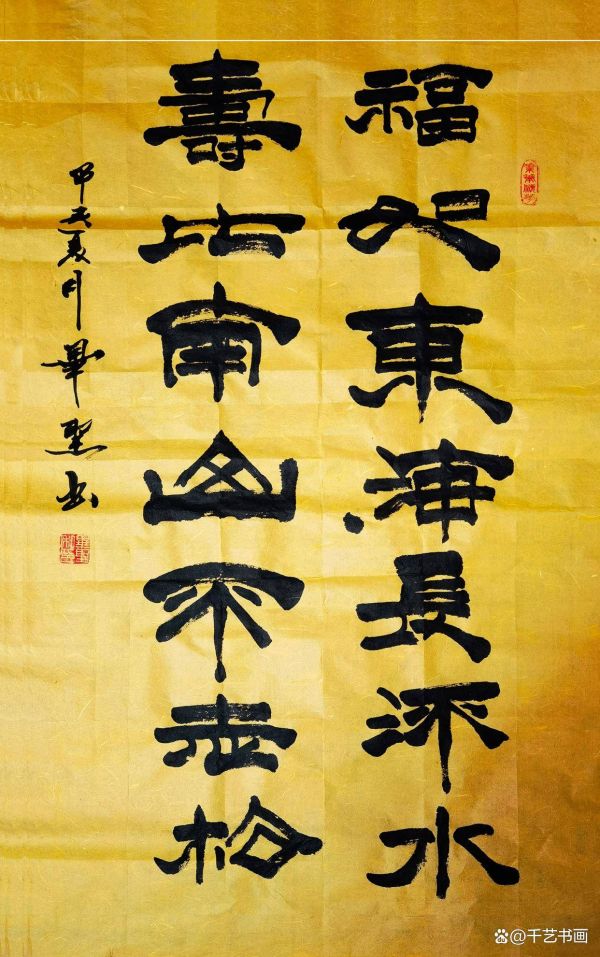 福如東海長流水
壽比南山不老松
甲辰夏月 聖书
@千艺书画